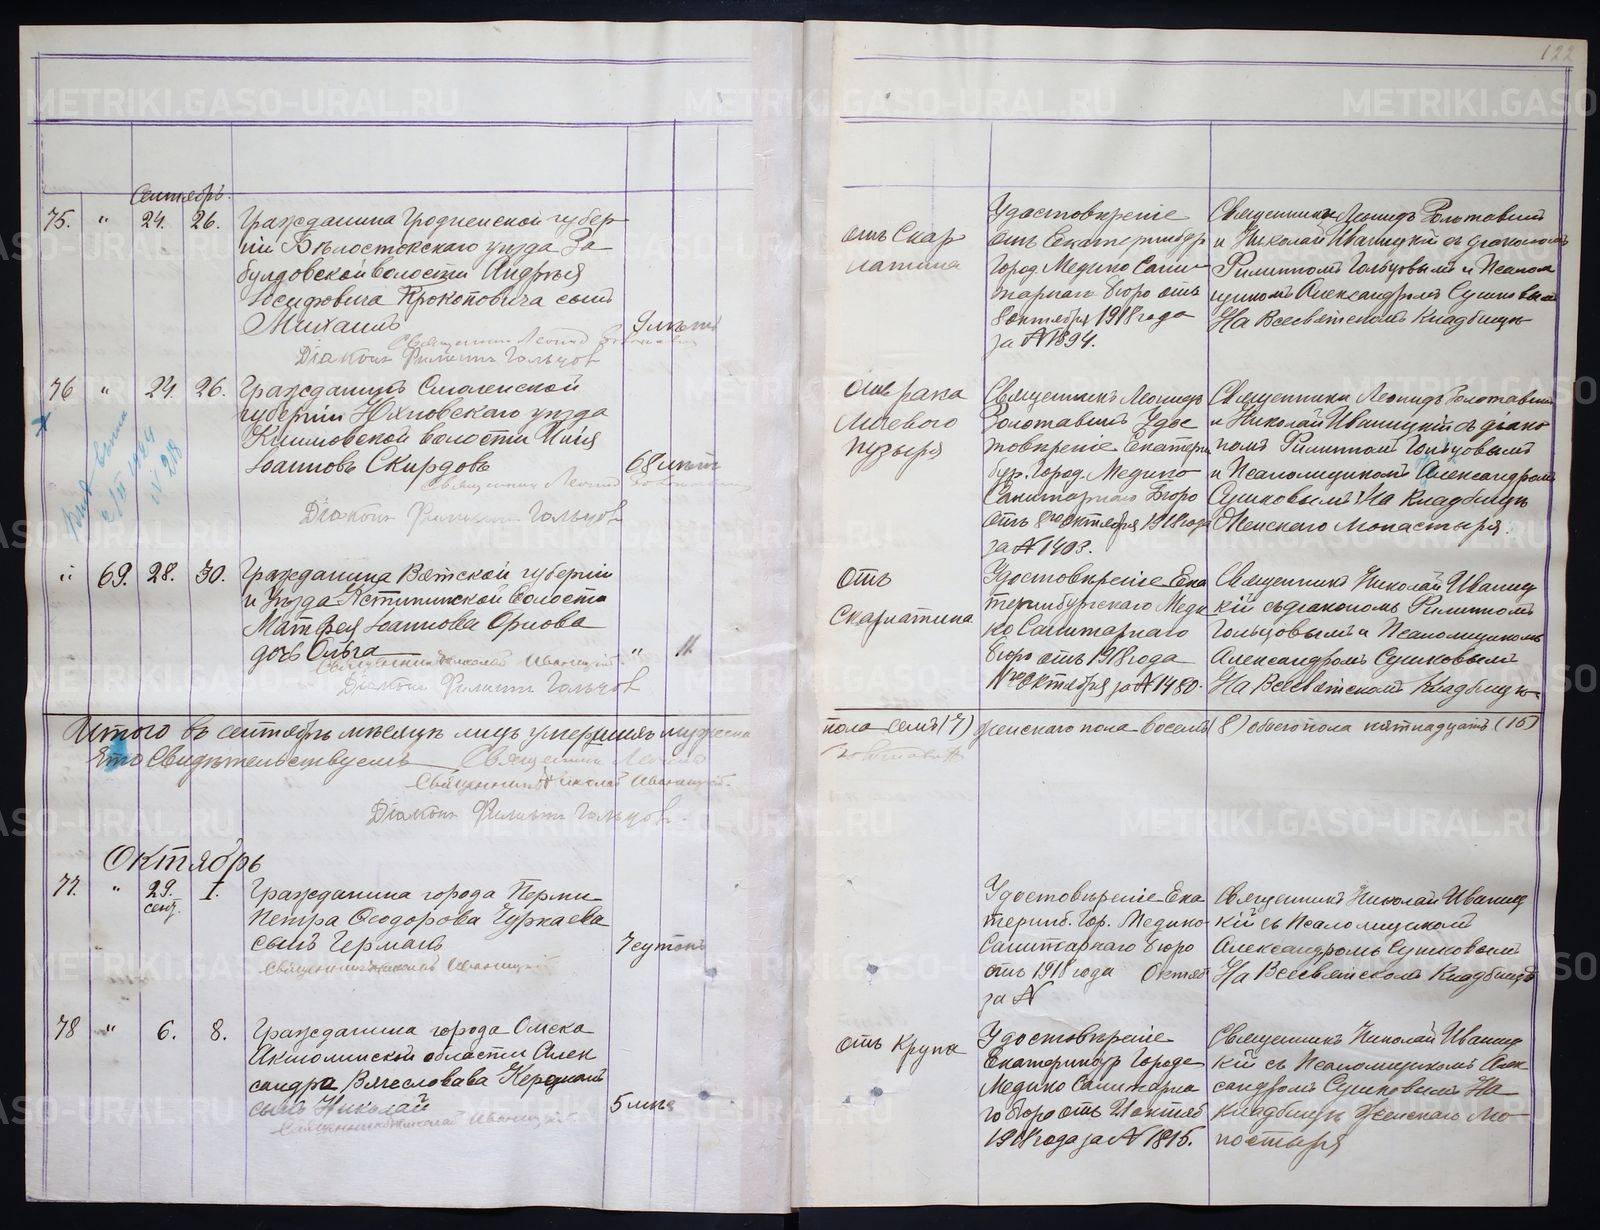 122
Сентябрь.
75. " 24. 26. Гражданина Гродненской губер
ніи Бѣлостокскаго уѣзда За
булдовской волости Андрея
Іосифовича Прокоповича сынъ
Михаилъ
9 лѣтъ
Священникъ Леонид
Діаконъ Филиппъ Гольцов
отъ Скар
латина
Удостовѣреніе
отъ Екатеринбур
город. Медико Сани
тарнаго бюро отъ
8 октября 1918 года
за № 1894.
Священники Леонидъ Золотавин
и Николай Иваницкій съ діакономъ
Филиппомъ Гольцовымъ и Псалом
щикомъ Александромъ Сушковым
На Всесвятскомъ Кладбищѣ
76 " 24. 26. Гражданинъ Смоленской
губерніи Юхновскаго уѣзда
Климовской волости Илія
Іоанновъ Скирдовъ
68 лѣтъ
Священник Леонид
Діаконъ Филиппъ Гольцов
отъ рака
мочевого
пузыря
Священникъ Леонидъ
Золотавинъ Удос
товѣреніе Екатери
бур. Город. Медико
Санитарнаго Бюро
отъ 8го октября 1918 года
за № 1403.
Священники Леонидъ Золотавин
и Николай Иваницкій съ діако
номъ Филиппом Гольцовымъ
и Псаломщикомъ Александромъ
Сушковымъ На Кладбищѣ
Женскаго Монастыря.
" 69. 28. 30. Гражданина Вятской губерніи
и уѣзда Кстининской волости
Матфея Іоаннова Орлова
дочь Ольга
" 11
Священникъ Николай Иваницкій.
Діаконъ Филиппъ Гольцов
отъ
скарлатина
Удостовѣреніе Ека
теринбургскаго Меди
ко Санитарнаго
бюро отъ 1918 года
11го Октября за № 1480.
Священникъ Николай Иваниц
кій съ діакономъ Филиппомъ
Гольцовымъ и Псаломщикомъ
Александромъ Сушковымъ
На Всесвятскомъ Кладбищѣ
Итого въ сентябрѣ мѣсяцѣ лицъ умершихъ мужеска
пола семь (7) женскаго пола восемь (8) обоего пола пятнадцать (15)
Что Свидѣтельствуемъ Священник Леонид
Священникъ Николай Иваницкій.
Діаконъ Филиппъ Гольцов.
Октябрь
77. " 29. сент. 1. Гражданина города Перми
Петра Ѳеодорова Чуркаева
сынъ Германъ
7 сутокъ
Священникъ Николай Иваницкій
Удостовѣреніе Ека
теринб. Гор. Медико-
Санитарнаго бюро
отъ 1918 года Октяб
за №
Священникъ Николай Иваниц
кій съ Псаломщикомъ
Александромъ Сушковымъ
На Всесвятскомъ Кладбищѣ
78 " 6. 8. Гражданина города Омска
Акмолинской области Алек
сандра Вячеславова
сынъ Николай
5 мѣс
Священникъ Николай Иваницкій.
отъ крупа
Удостовѣреніе
Екатеринбур Городс
Медико Санитарна
го бюро отъ 11 октяб
1918 года за № 1815.
Священникъ Николай Иваниц
кій съ Псаломщикомъ Алек
сандромъ Сушковымъ На
кладбищѣ Женскаго Мо
настыря
METRIKI.GASO-URAL.RU